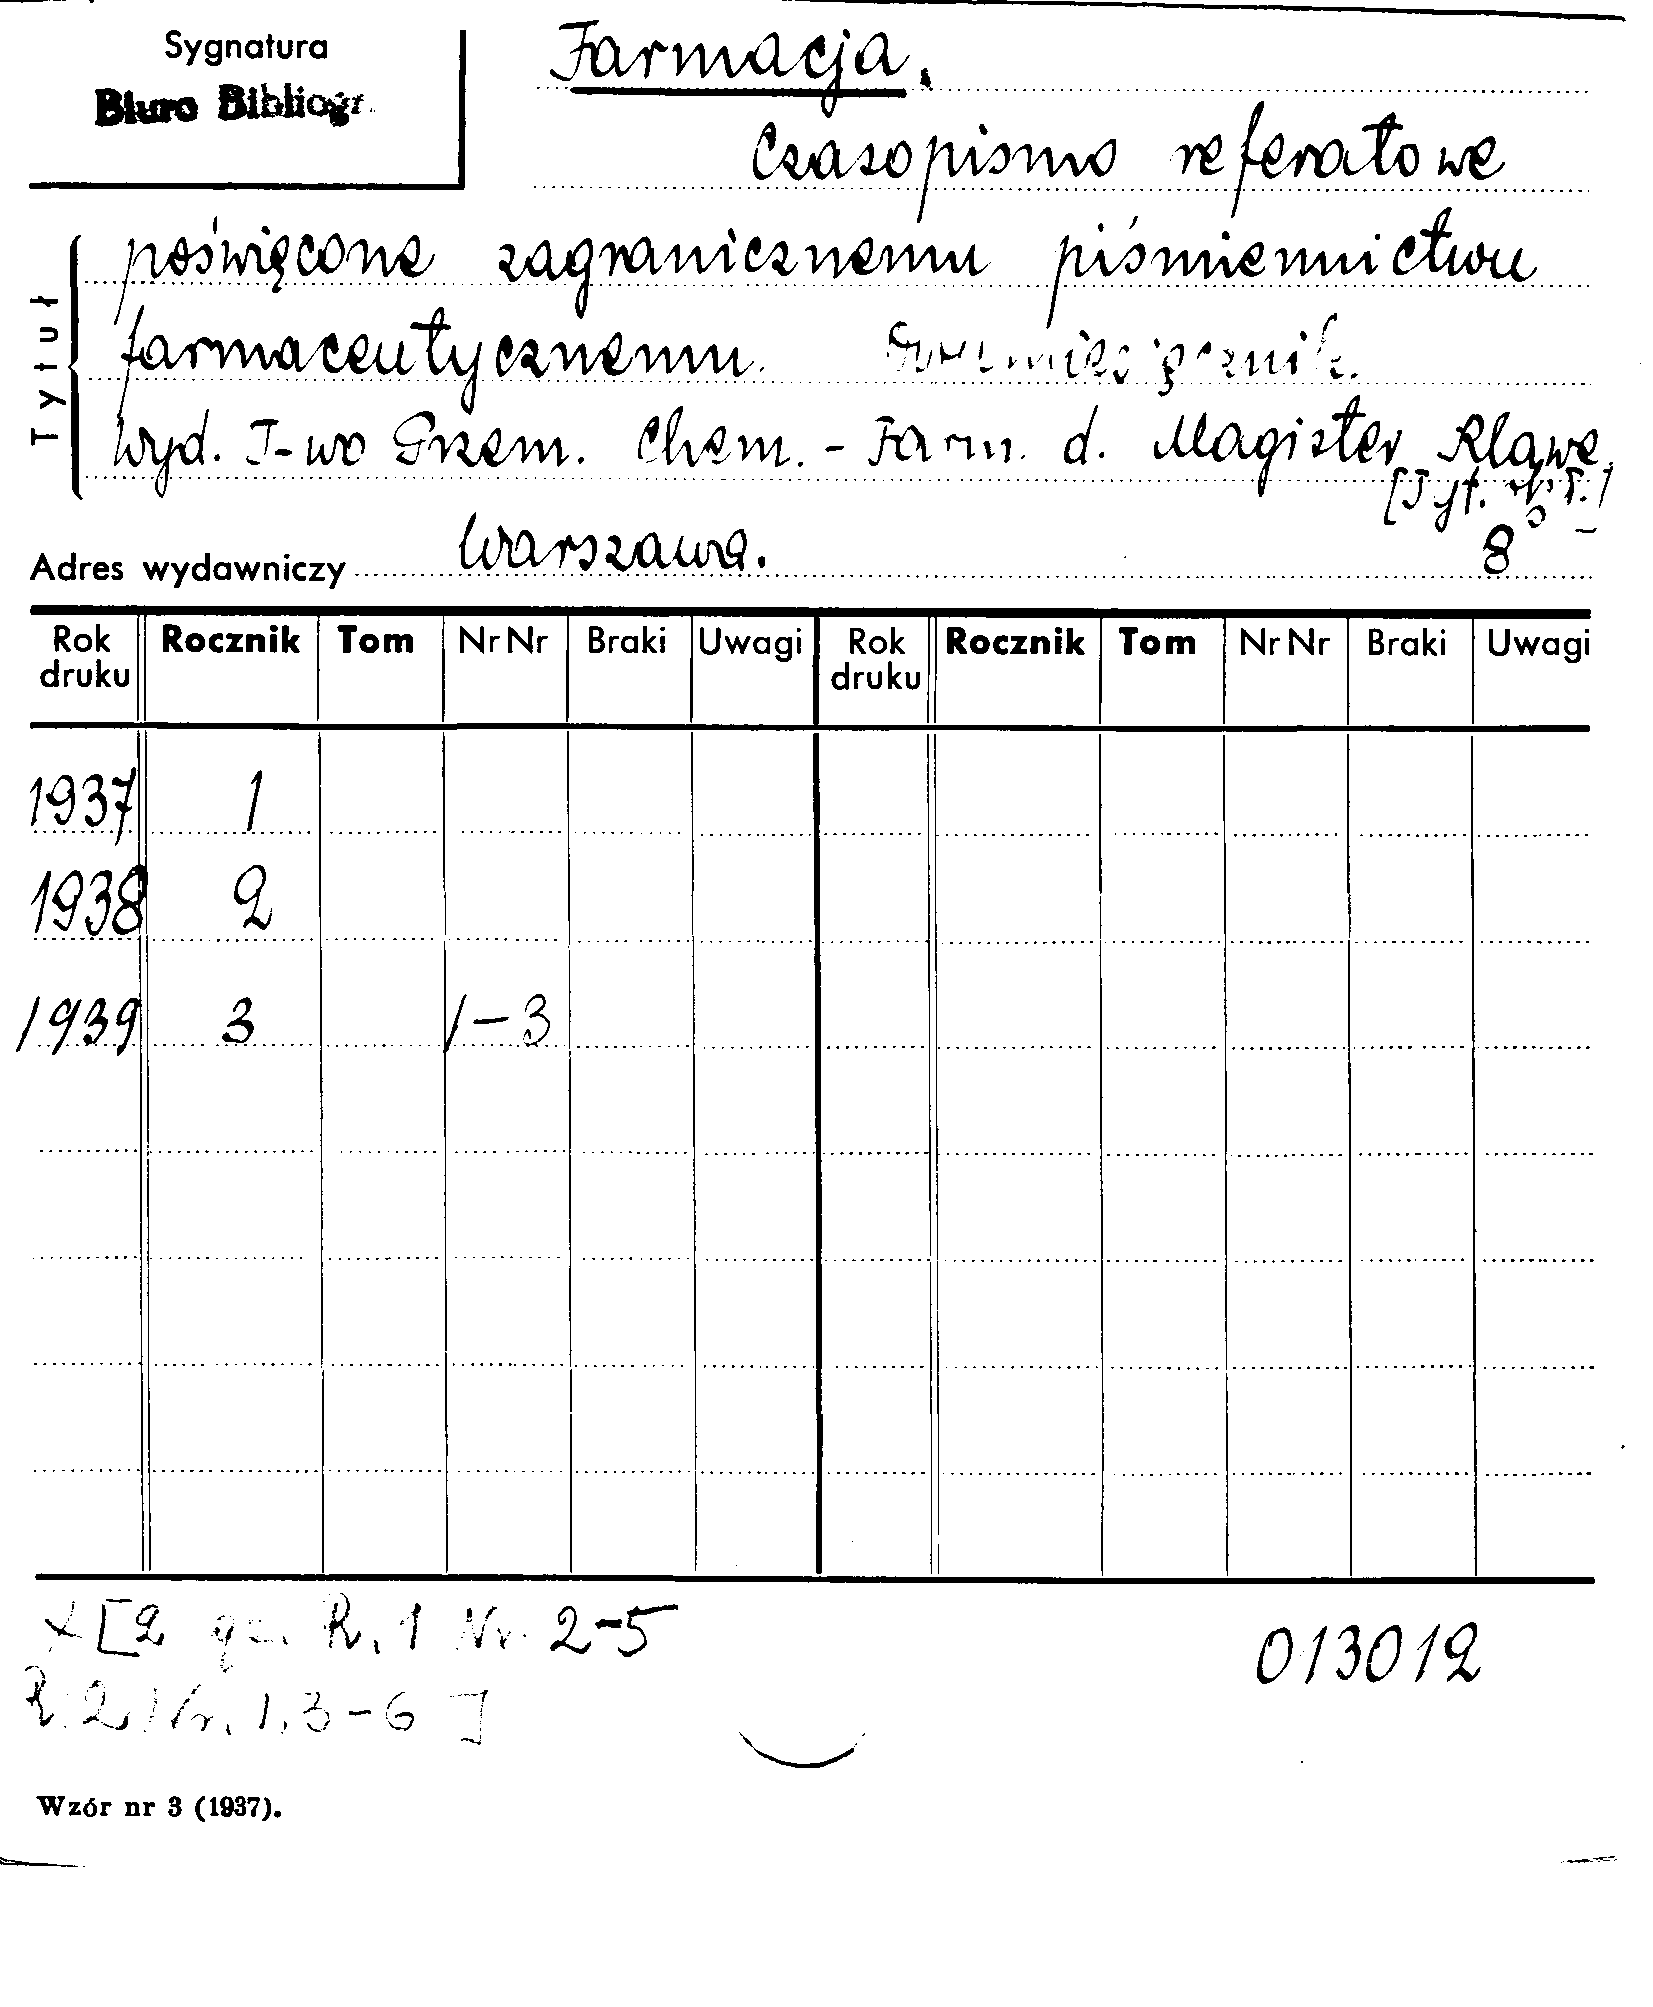 Sygnatura
Biuro Bibliogr.
Farmacja.
Czasopismo referatowe
poświęcone zagranicznemu piśmiennictwu
farmaceutycznemu. Dwumiesięcznik.
Tytuł
Wyd. T-wo Przem. Chem.-Farm. d. Magister Klawe.
[Tyt.
Adres wydawniczy Warszawa. 8
Rok druku Rocznik Tom Nr Nr Braki Uwagi Rok druku Rocznik Tom Nr Nr Braki Uwagi
1937 1
1938 2
1939 3 1-3
+ [2 gz. R. 1 Nr. 2-5
R. 2 Nr. 1, 3-6]
013012
Wzór nr 3 (1937).